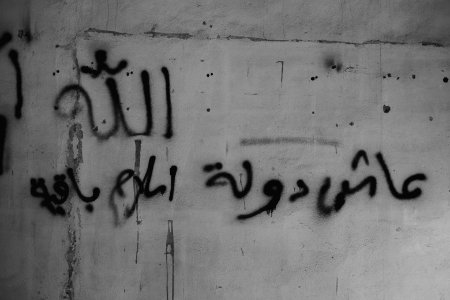 الله
عاش دولة اسلام باقية